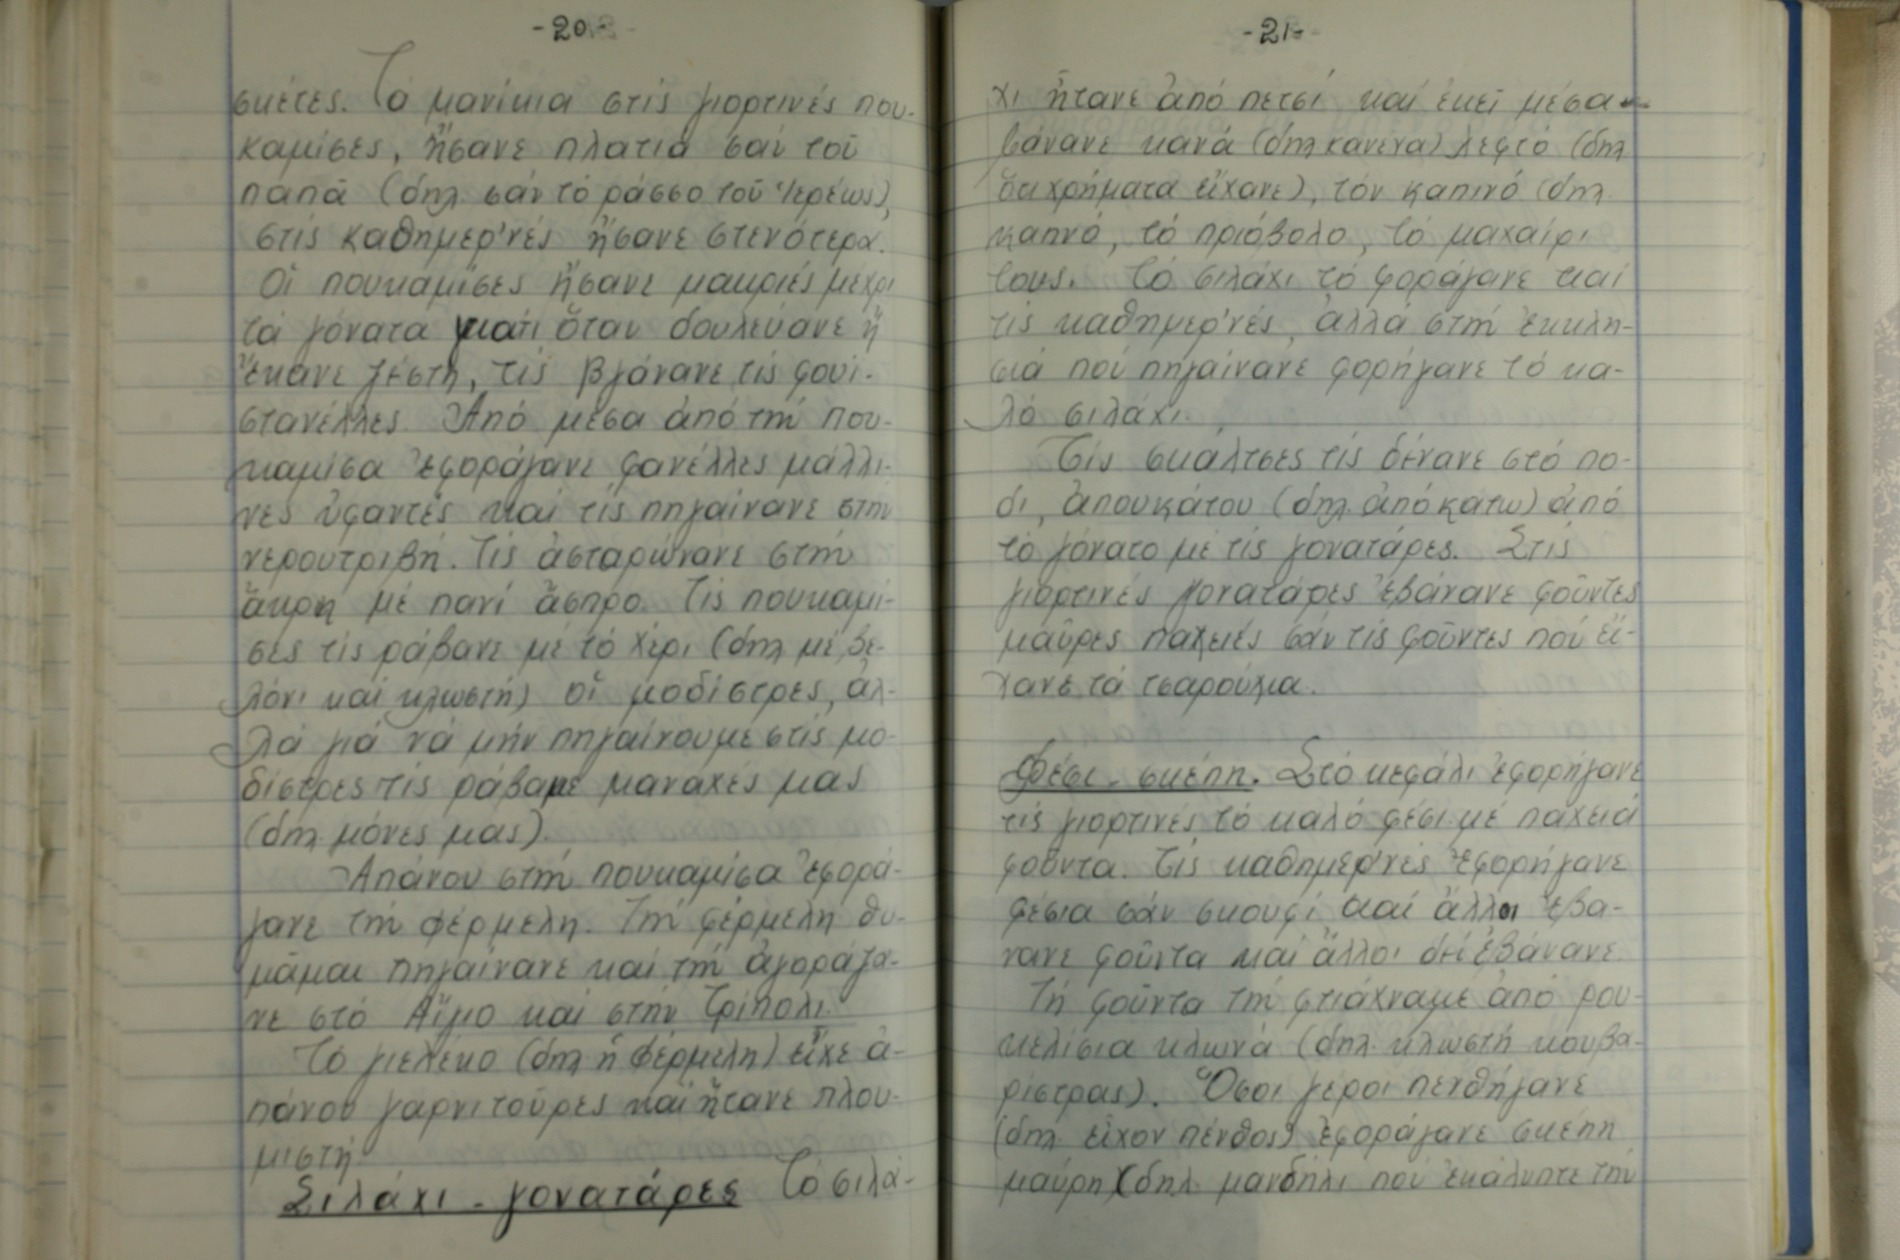 -20-
σκέτες. Τό μανίκια στίς γιορτινές που-
καμίσες, ἤσανε πλατιά σάν τοῦ
παπᾶ (δηλ. σάν τό ράσσο τοῦ Ἱερέως),
στίς καθημερ'νές ἤσανε στενότερα.
Οἱ πουκαμίσες ἤσανε μακριές μέχρι
τά γόνατα γιατί ὅταν δουλεύανε ἤ
ἔκανε ζέστη, τίς βγάνανε τίς φουι-
στανέλλες. Ἀπό μέσα ἀπό τήν που-
καμίσα ἐφοράγανε φανέλλες μάλλι-
νες ὑφαντές καί τίς πηγαίνανε στήν
νερουτριβή. Τίς ἀσταρώνανε στήν
ἄκρη μέ πανί ἄσπρο. Τίς πουκαμί-
σες τίς ράβανε μέ τό χέρι (δηλ μέ βε-
λόνι καί κλωστή) οἱ μοδίστρες, ἀλ-
λά γιά νά μήν πηγαίνουμε στίς μο-
δίστρες τίς ράβαμε μαναχές μας
(δηλ μόνες μας).
Ἀπάνου στήν πουκαμίσα ἐφορά-
γανε τήν φέρμελη. Τή φέρμελη θυ-
μᾶμαι πηγαίνανε καί τήν ἀγοράζα-
νε στό Αἴγιο καί στήν Τρίπολι.
Τό γιελέκο (δηλ ἡ φέρμελη) εἶχε ἀ-
πάνου γαρνιτοῦρες καί ἤτανε πλου-
μιστή.
Σιλάχι - γονατάρες Τό σιλά-
-21-
χι ἤτανε ἀπό πετσί καί ἐκεῖ μέσα
βάνανε κανά (δηλ κανένα) λεφτό (δηλ
ὅτι χρήματα εἴχανε), τόν καπινό (δηλ.
καπνό, τό πριόβολο, τό μαχαίρι
τους. Τό σιλάχι τό φοράγανε καί
τίς καθημερ'νές, ἀλλά στήν ἐκκλη-
σιά πού πηγαίνανε φορήγανε τό κα-
λό σιλάχι.
Τίς σκάλτσες τίς δένανε στό πο-
δι, ἀπουκάτου (δηλ. ἀπό κάτω) ἀπό
τό γόνατο μέ τίς γονατάρες. Στίς
γιορτινές γονατάρες ἐβάνανε φοῦντες
μαῦρες παχειές σάν τίς φοῦντες πού εἴ-
χανε τά τσαρούχια.
Φέσι - σκέπη. Στό κεφάλι ἐφορήγανε
τίς γιορτινές τό καλό φέσι μέ παχειά
φούντα. Τίς καθημερ'νές ἐφορήγανε
φέσια σάν σκουφί καί ἄλλοι ἐβα-
νανε φοῦντα καί ἄλλοι δέ ἐβάνανε.
Τή φοῦντα τήν φτιάχναμε ἀπό ρου-
κελίσια κλωνά (δηλ. κλωστή κουβα-
ρίστρας). Ὅσοι γέροι πενθήγανε
(δηλ. εἶχον πένθος) ἐφοράγανε σκέπη
μαύρη (δηλ. μανδήλι πού ἐκάλυπτε τήν